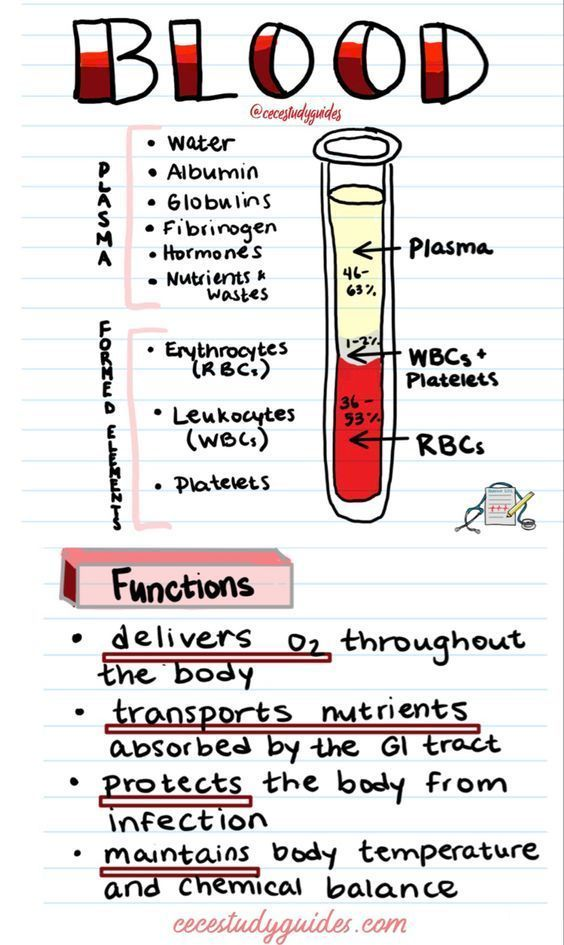 BLOOD
@cecestudyguides
PLASMA
• Water
• Albumin
• Globulins
• Fibrinogen
• Hormones
• Nutrients &
Wastes
FORMED ELEMENTS
• Erythrocytes
(RBCs)
• Leukocytes
(WBCs)
• Platelets
Plasma
46-
63%
1-2%
WBCs +
Platelets
36-
53%
RBCs
Functions
• delivers O2 throughout
the body
• transports nutrients
absorbed by the GI tract
• protects the body from
infection
• maintains body temperature
and chemical balance
cecestudyguides.com